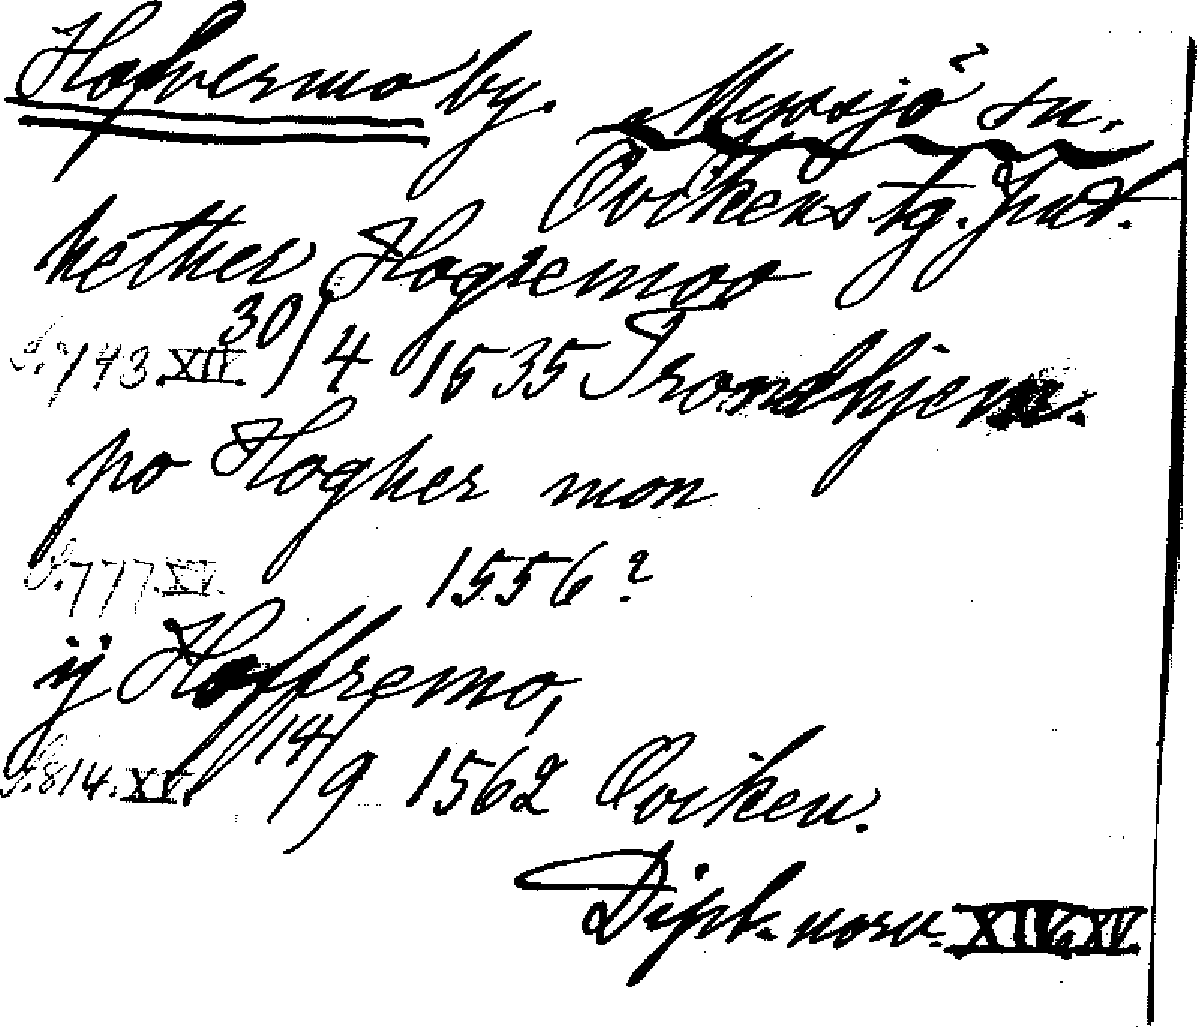 Hofvermo by. Myssjö? sn.
Ovikens tg. Jmtl.
nether Hogremoo
S. 743. XIV. 30/4 1535 Trondhjem.
po Hogher mon
S. 777. XV. 1556?
ij Hoffremo,
S. 814. XV. 14/9 1562 Oviken.
Dipl. norv. XIV, XV.